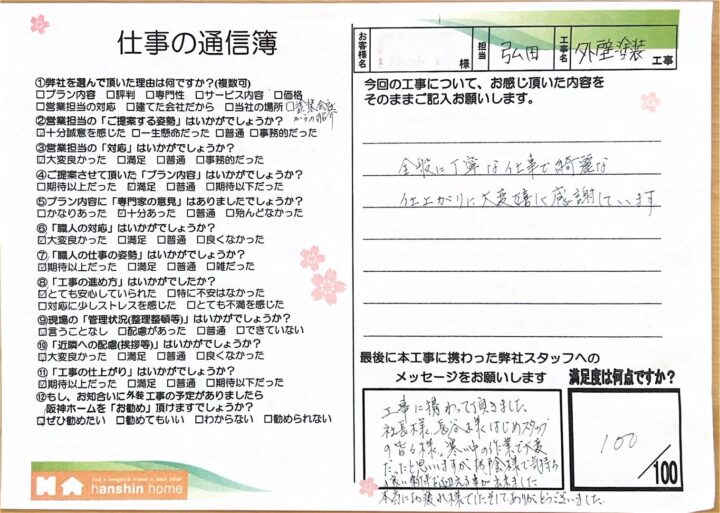 仕事の通信簿
①弊社を選んで頂いた理由は何ですか?(複数可)
□プラン内容 □評判 □専門性 □サービス内容 □価格
□営業担当の対応 □建てた会社だから □当社の場所
②営業担当の「ご提案する姿勢」はいかがでしょうか?
☑十分誠意を感じた □一生懸命だった □普通 □事務的だった
③営業担当の「対応」はいかがでしょうか?
☑大変良かった □満足 □普通 □事務的だった
④ご提案させて頂いた「プラン内容」はいかがでしょうか?
□期待以上だった ☑満足 □普通 □期待以下だった
⑤プラン内容に「専門家の意見」はありましたでしょうか?
□かなりあった ☑十分あった □普通 □殆んどなかった
⑥「職人の対応」はいかがでしょうか?
☑大変良かった □満足 □普通 □良くなかった
⑦「職人の仕事の姿勢」はいかがでしょうか?
☑期待以上だった □満足 □普通 □雑だった
⑧「工事の進め方」はいかがでしたか?
☑とても安心していられた □特に不安はなかった
□対応に少しストレスを感じた □とても不満を感じた
⑨現場の「管理状況(整理整頓等)」はいかがでしょうか?
☑言うことなし □配慮があった □普通 □できていない
⑩「近隣への配慮(挨拶等)」はいかがでしょうか?
☑大変良かった □満足 □普通 □良くなかった
⑪「工事の仕上がり」はいかがでしょうか?
☑期待以上だった □満足 □普通 □期待以下だった
⑫もし、お知合いに外装工事の予定がありましたら
阪神ホームを「お勧め」頂けますでしょうか?
☑ぜひ勧めたい □勧めてもいい □わからない □勧められない
find a congenial friend in each other
hanshin home
お客様名 様 担当 弘田 工事名 外壁塗装 工事
今回の工事について、お感じ頂いた内容を
そのままご記入お願いします。
全般に丁寧な仕事で綺麗な
仕上がりに大変嬉しく感謝しています
最後に本工事に携わった弊社スタッフへの
メッセージをお願いします
工事に携わって頂きました
社長様、長谷様はじめスタッフ
の皆々様、寒い中の作業で大変
だったと思いますが、お陰様で気持ち
良い新年を迎える事が出来ました
本当にお疲れ様でした。そしてありがとうございました。
満足度は何点ですか?
100
/100